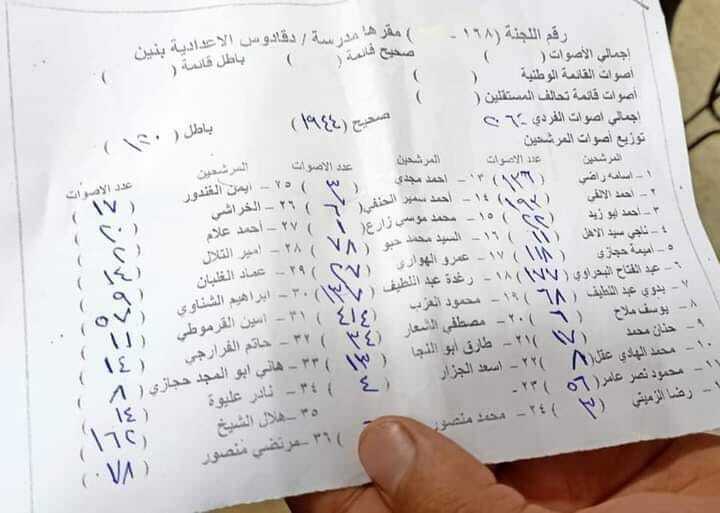 رقم اللجنة (١٦٨ - ) مقرها مدرسة / دقادوس الاعدادية بنين
إجمالي الأصوات ( ) صحيح قائمة ( ) باطل قائمة ( )
أصوات القائمة الوطنية ( )
أصوات قائمة تحالف المستقلين ( )
إجمالي اصوات الفردي ٢٠٦٤ صحيح (١٩٤٤) باطل (١٢٠)
توزيع أصوات المرشحين
المرشحين عدد الاصوات المرشحين عدد الاصوات المرشحين عدد الاصوات
١ - اسامه راضي (١٢٦) ١٣ - احمد مجدي (٣) ٢٥ - ايمن الغندور (١٧)
٢ - احمد الالفي (١٩٢) ١٤ - أحمد سمير الحنفي ٢٦ - الخراشي
٣ - احمد ابو زيد (٢٢) ١٥ - محمد موسي زارع ٢٧ - أحمد علام
٤ - ناجي سيد الاهل (١١) ١٦ - السيد محمد حبو (٧٨) ٢٨ - امير التلال
٥ - اميمة حجازي (١١٨) ١٧ - عمرو الهواري (٢٧) ٢٩ - عماد الغلبان
٦ - عبد الفتاح البحراوي (١٧٧) ١٨ - رغدة عبد اللطيف ٣٠ - ابراهيم الشناوي
٧ - بدوي عبد اللطيف (٦٨) ١٩ - محمود العزب (٤١٤) ٣١ - اسين القرموطي (١١)
٨ - يوسف ملاح (٦) ٢٠ - مصطفي الشعار (٣٤) ٣٢ - حاتم الفرارجي (١٤)
٩ - حنان محمد (١٧) ٢١ - طارق ابو النجا ٣٣ - هاني ابو المجد حجازي (٨)
١٠ - محمد الهادي عقل (٨) ٢٢ - اسعد الجزار (٤) ٣٤ - نادر عليوة (١٤)
١١ - محمود نصر عامر (٥٦) ٢٣ - ٣٥ - هلال الشيخ (١٦٢)
رضا الزميتي ٢٤ - محمد منصور ٣٦ - مرتضي منصور (٧٨)